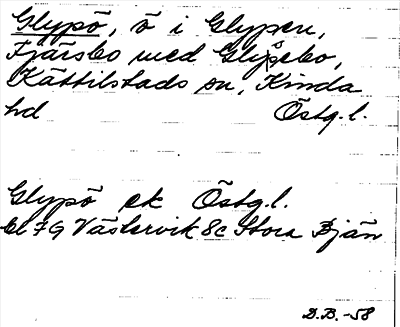 Glypö, ö i Glypen,
Fjärsbo med Glysebo,
Kättilstads sn, Kinda
hd Östg.l.
Glypö ek Östg.l.
bl 7G Västervik 8c Stora Bjän
D.B. -58